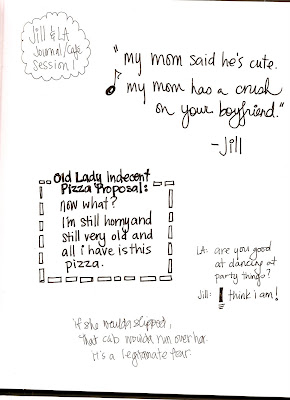 Jill & LA
Journal/Cafe
Session!
"my mom said he's cute.
my mom has a crush
on your boyfriend."
-Jill
Old Lady Indecent
Pizza Proposal:
now what?
I'm still horny and
still very old and
all i have is this
pizza.
LA: are you good
at dancing at
party things?
Jill: I think i am!
if she woulda slipped,
that cab woulda run over her.
It's a legitimate fear.